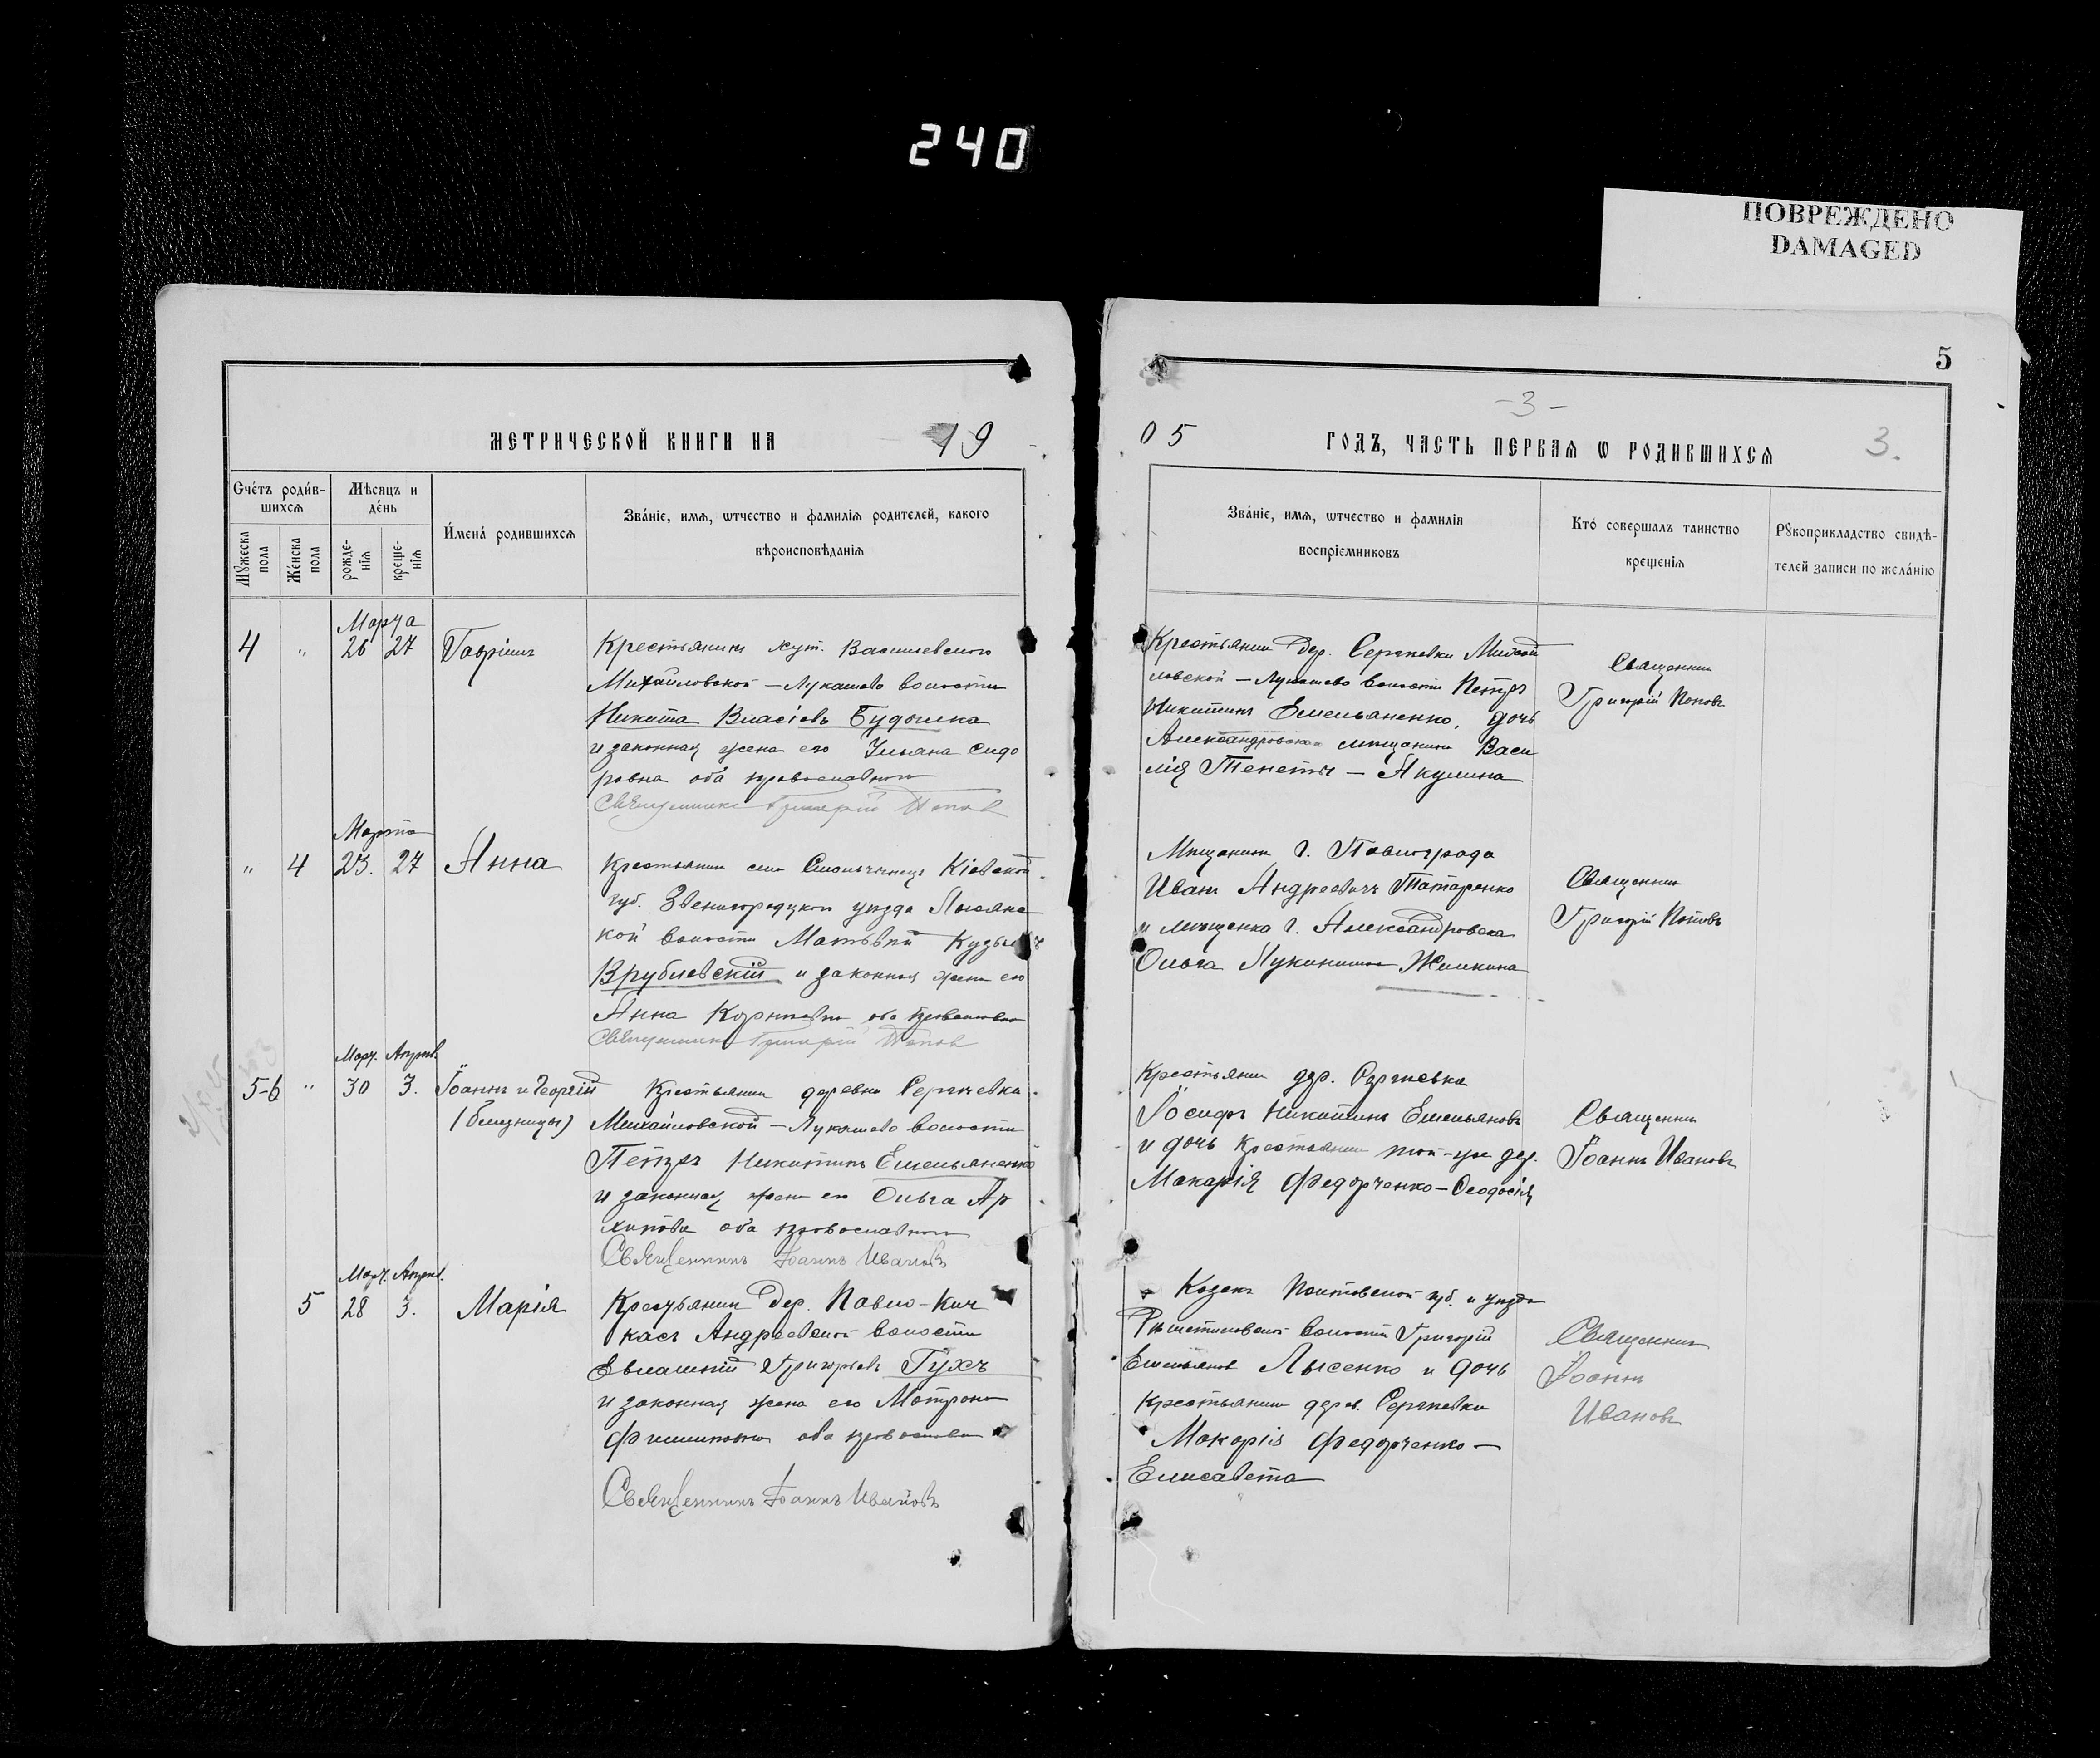 240
ПОВРЕЖДЕНО
DAMAGED
5
-3-
МЕТРИЧЕСКОЙ КНИГИ НА 19
05 ГОДЪ, ЧАСТЬ ПЕРВАЯ Ѡ РОДИВШИХСЯ 3.
Счётъ родив-
шихся
Мѣсяцъ и
день
Мужеска
пола
Женска
пола
рожде-
нія
креще-
нія
Имена родившихся
Званіе, имя, ѡтчество и фамилія родителей, какого
вѣроисповѣданія
Званіе, имя, ѡтчество и фамилія
воспріемниковъ
Кто совершалъ таинство
крещенія
Рукоприкладство свидѣ-
телей записи по желанію
Марта
4 " 26 27 Гавріилъ
Крестьянинъ хут. Васильевского
Михайловской – Лукашево волости
Никита Власіевъ Будюшка
и законная жена его Ульяна Сидо
ровна оба православные
Священникъ Григорій Поповъ
Крестьянинъ дер. Сергѣевки Михай
ловской – Лукашево волости Петръ
Никитинъ Емельяненко, дочь
Александровского мѣщанина Васи
лія Тенеты – Акулина
Священникъ
Григорій Поповъ
Марта
" 4 23. 27 Анна
Крестьянинъ села Кіевской
губ. Звенигородскаго уѣзда Лысянс
кой волости Матвѣй
Врублевскій и законная жена его
Анна Корнѣевна оба православные
Священникъ Григорій Поповъ
Мѣщанинъ г. Павлограда
Иванъ Андреевичъ Татаренко
и мѣщанка г. Александровска
Ольга Жилкина
Священникъ
Григорій Поповъ
Март. Апрѣл.
5-6 " 30 3. Іоаннъ и Георгій
(близнецы)
Крестьянинъ деревни Сергѣевки
Михайловской – Лукашево волости
Петръ Никитинъ Емельяненко
и законная жена его Ольга Ар
хипова оба православные
Священникъ Іоаннъ Ивановъ
Крестьянинъ дер. Сергѣевки
Іосифъ Никитинъ Емельяновъ
и дочь крестьянина той-же дер.
Макарія Федорченко – Ѳеодосія
Священникъ
Іоаннъ Ивановъ
Март. Апрѣл.
5 28 3. Марія
Крестьянинъ дер. Павло-Кич
касъ Андреевской волости
Евлампій Григорьевъ Гухъ
и законная жена его Матрона
Филиппова оба православные
Священникъ Іоаннъ Ивановъ
Козакъ Полтавской губ. и уѣзда
Рѣшетиловской волости Григорій
Емельяновъ Лысенко и дочь
крестьянина дерев. Сергѣевки
Макарія Федорченко –
Елисавета
Священникъ
Іоаннъ
Ивановъ